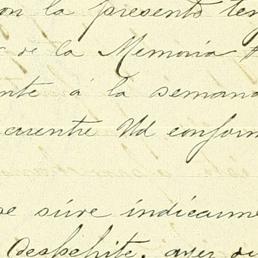 on la presente ten
de la Memoria
nte á la semana
cuentre Vd conform
se sirve indicarme
Despchite, ayer di